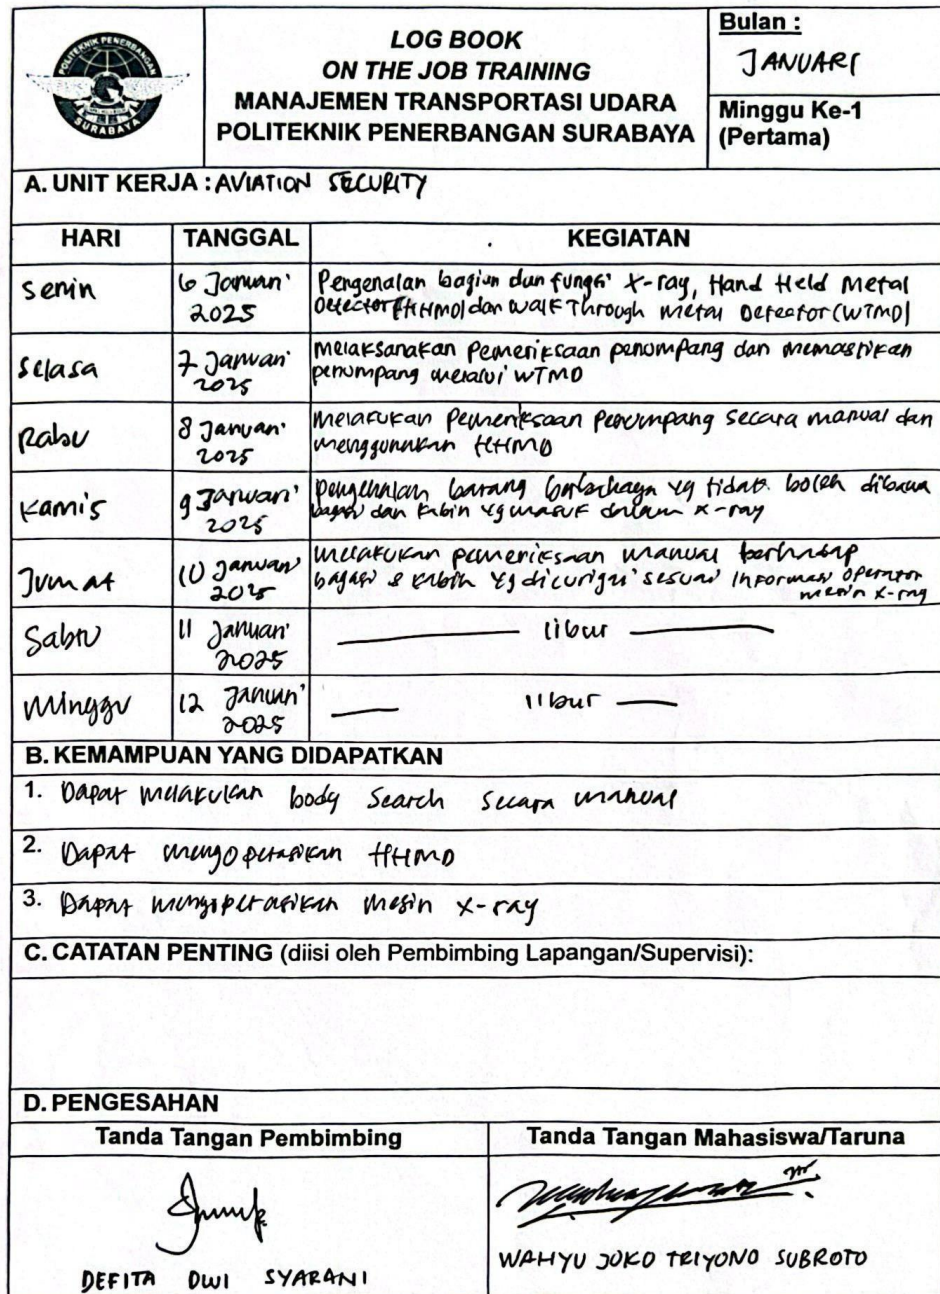 POLITEKNIK PENERBANGAN
SURABAYA
LOG BOOK
ON THE JOB TRAINING
MANAJEMEN TRANSPORTASI UDARA
POLITEKNIK PENERBANGAN SURABAYA
Bulan :
JANUARI
Minggu Ke-1
(Pertama)
A. UNIT KERJA : AVIATION SECURITY
HARI TANGGAL KEGIATAN
Senin 6 Januari 2025 Pengenalan bagian dan fungsi X-ray, Hand Held Metal
Detector (HHMD) dan Walk Through Metal Detector (WTMD)
Selasa 7 Januari 2025 Melaksanakan Pemeriksaan penumpang dan memastikan
penumpang melalui WTMD
Rabu 8 Januari 2025 Melakukan Pemeriksaan Penumpang Secara manual dan
menggunakan HHMD
Kamis 9 Januari 2025 Pengenalan barang berbahaya yg tidak boleh dibawa
bagasi dan kabin yg masuk dalam x-ray
Jumat 10 Januari 2025 Melakukan pemeriksaan manual terhadap
bagasi & kabin yg dicurigai sesuai informasi operator
mesin x-ray
Sabtu 11 Januari 2025 libur
Minggu 12 Januari 2025 libur
B. KEMAMPUAN YANG DIDAPATKAN
1. Dapat melakukan body Search secara manual
2. Dapat mengoperasikan HHMD
3. Dapat mengoperasikan mesin x-ray
C. CATATAN PENTING (diisi oleh Pembimbing Lapangan/Supervisi):
D. PENGESAHAN
Tanda Tangan Pembimbing
Tanda Tangan Mahasiswa/Taruna
DEFITA DWI SYARANI
WAHYU JOKO TRIYONO SUBROTO